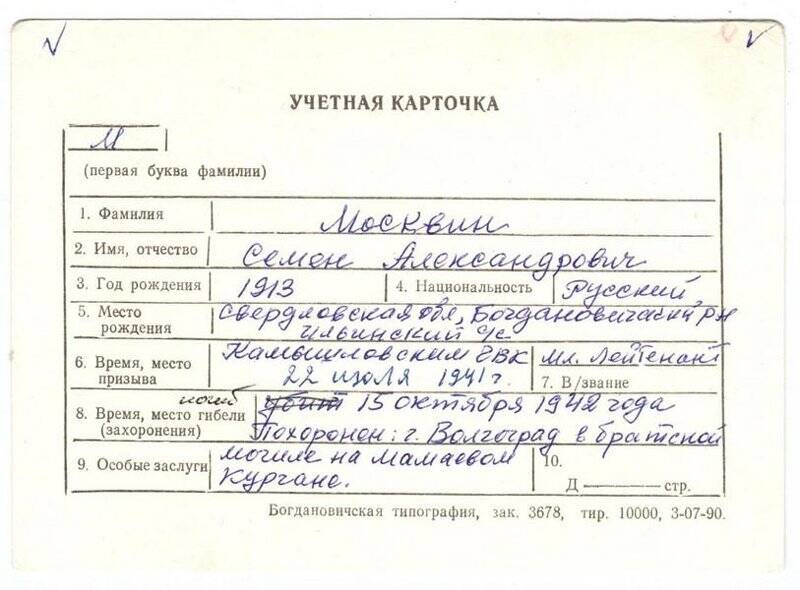 УЧЕТНАЯ КАРТОЧКА
М
(первая буква фамилии)
1. Фамилия Москвин
2. Имя, отчество Семен Александрович
3. Год рождения 1913 4. Национальность Русский
5. Место рождения Свердловская обл, Богдановический р-н
Ильинский с/с
6. Время, место призыва Камышловским ГВК
22 июля 1941 г.
мл. Лейтенант
7. В/звание
погиб
8. Время, место гибели (захоронения) убит 15 октября 1942 года
Похоронен: г. Волгоград в братской
9. Особые заслуги могиле на Мамаевом
Кургане.
10.
Д ——— стр.
Богдановичская типография, зак. 3678, тир. 10000, 3-07-90.